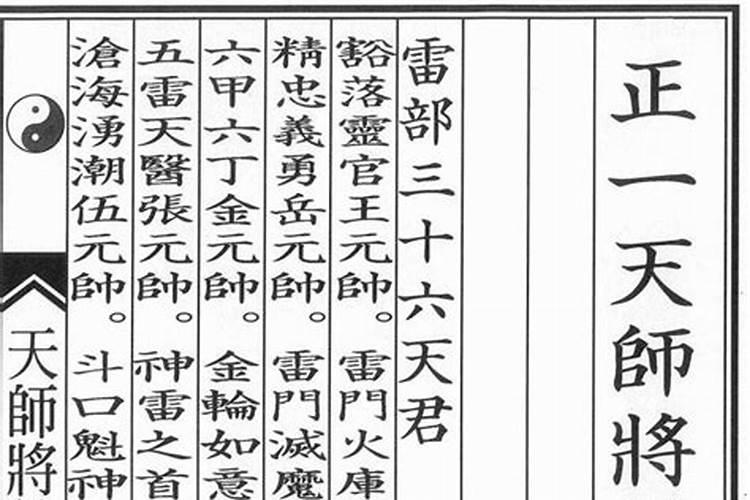 正一天師將
雷部三十六天君
豁落靈官王元帥。雷門火庫
精忠義勇岳元帥。雷門滅魔
六甲六丁金元帥。金輪如意
五雷天醫張元帥。神雷之首
滄海湧潮伍元帥。斗口魁神
天師將